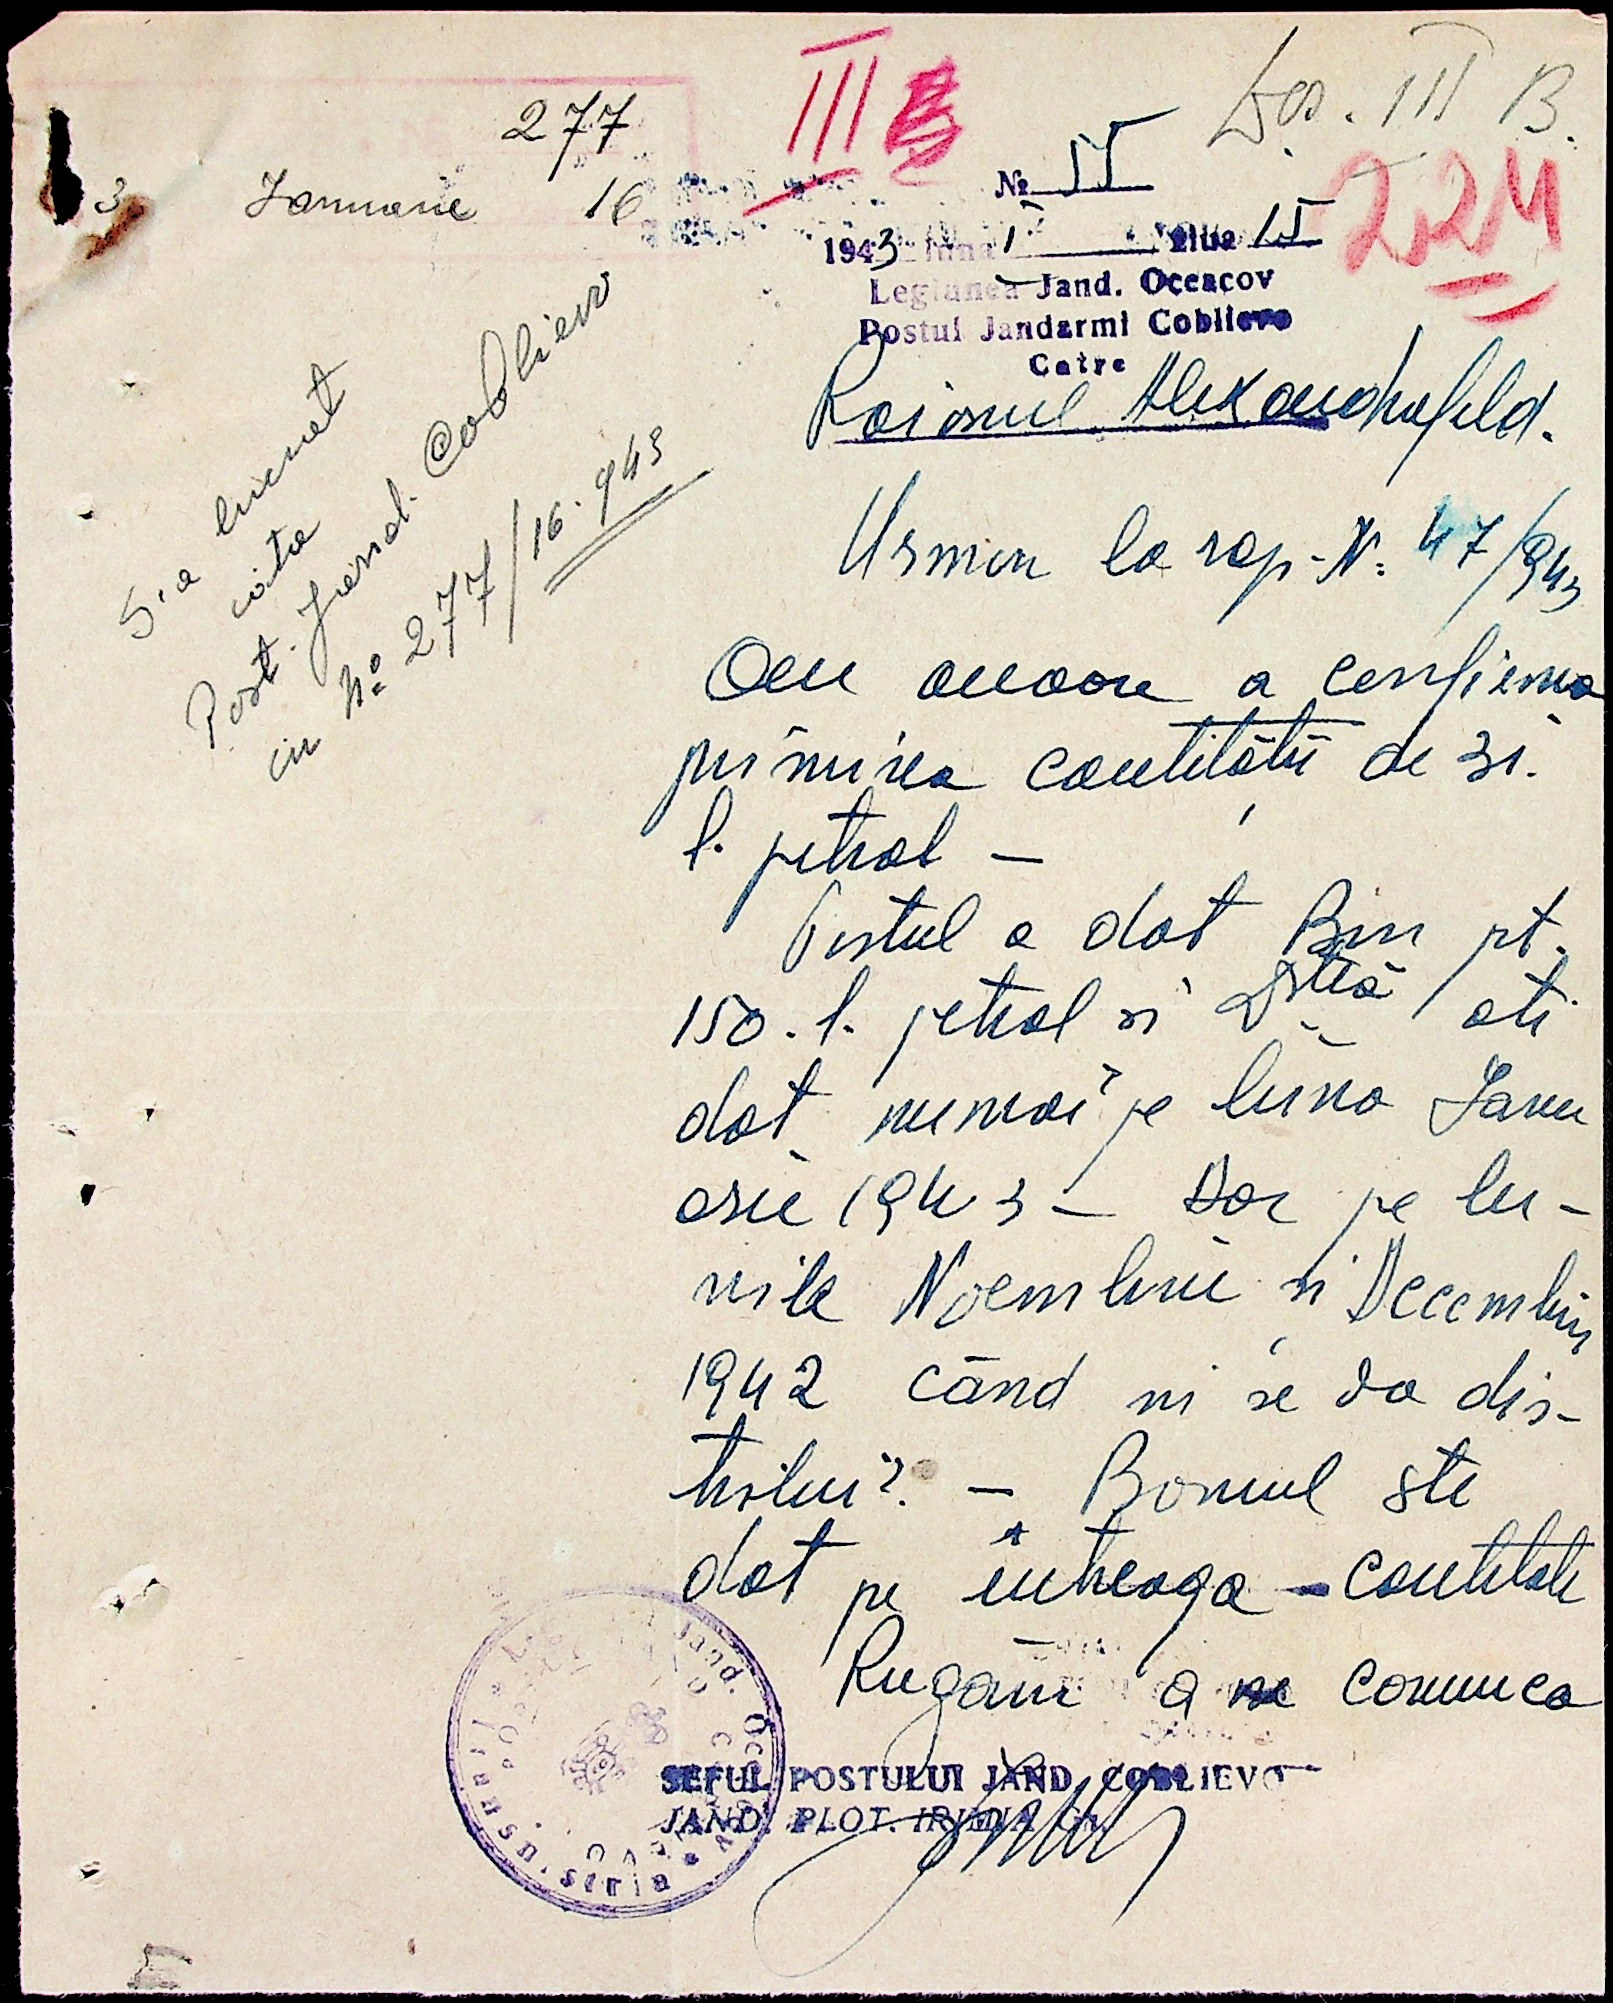 277
3 Ianuarie 16
III B
Dos. III B.
224
№ 55
1943 luna I Ziua 15
Legiunea Jand. Oceacov
Postul Jandarmi Coblievo
Catre
Raionul Alexandrufeld.
S-a lucrat
către
Post. Jand. Coblievo
cu No 277/16.943
Urmare la rap. N: 47/943
Am onoare a confirma
primirea cantității de 31.
l. petrol —
Postul a dat Bon pt.
150. l. petrol și Dstră ați
dat numai pe luna Ianu
arie 1943 — Dar pe lu-
nile Noembrie și Decembrie
1942 când ni se va dis-
tribui? — Bonul este
dat pe întreaga cantitate
Rugăm a ne comunica
SEFUL POSTULUI JAND. COBLIEVO
JAND. PLOT. IRIMIA Gh.